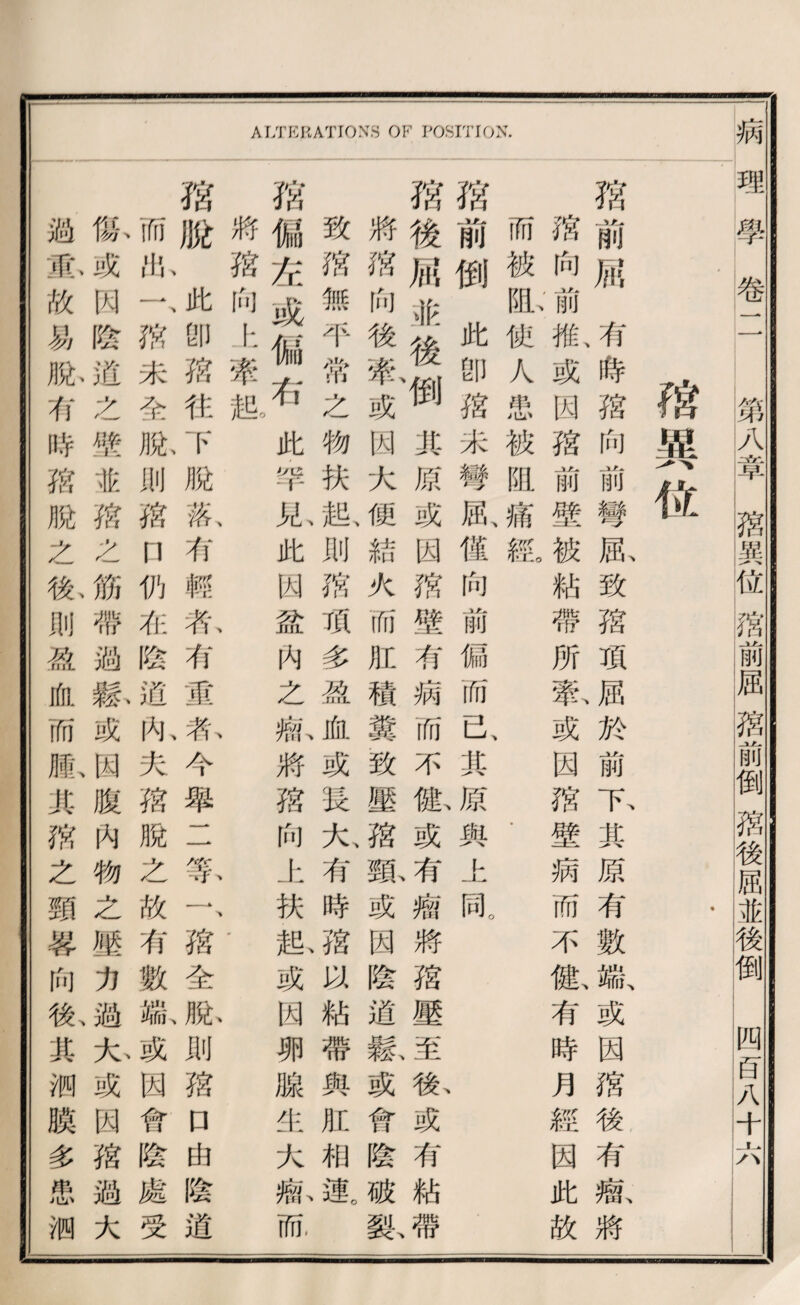 ALTERATIONS OF POSITION.
病理學 卷二 第八章 ⿰子宮異位 ⿰子宮前屈 ⿰子宮前倒 ⿰子宮後屈並後倒 四百八十六
⿰子宮異位
⿰子宮前屈 有時⿰子宮向前彎屈、致⿰子宮頂屈於前下、其原有數端、或因⿰子宮後有瘤、將
⿰子宮向前推、或因⿰子宮前壁被粘帶所牽、或因⿰子宮壁病而不健、有時月經因此故
而被阻、使人患被阻痛經。
⿰子宮前倒 此卽⿰子宮未彎屈、僅向前偏而已、其原與上同。
⿰子宮後屈並後倒 其原或因⿰子宮壁有病而不健、或有瘤將⿰子宮壓至後、或有粘帶
將⿰子宮向後牽、或因大便結火而肛積糞致壓⿰子宮頸、或因陰道鬆、或會陰破裂、
致⿰子宮無平常之物扶起、則⿰子宮頂多盈血或長大、有時⿰子宮以粘帶與肛相連。
⿰子宮偏左或偏右 此罕見、此因盆內之瘤、將⿰子宮向上扶起、或因卵腺生大瘤、而
將⿰子宮向上牽起。
⿰子宮脫 此卽⿰子宮往下脫落、有輕者、有重者、今舉二等、一、⿰子宮全脫、則⿰子宮口由陰道
而出、一、⿰子宮未全脫、則⿰子宮口仍在陰道內、夫⿰子宮脫之故有數端、或因會陰處受
傷、或因陰道之壁並⿰子宮之筋帶過鬆、或因腹內物之壓力過大、或因⿰子宮過大
過重、故易脫、有時⿰子宮脫之後、則盈血而腫、其⿰子宮之頸畧向後、其泗膜多患泗